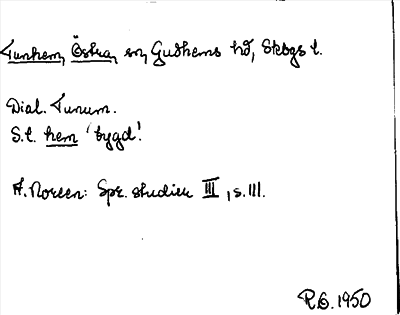 Tunhem, Östra, sn, Gudhems hd, Skbgs l.
Dial. Tunum.
S.l. hem 'bygd'.
A. Noreen: Spr. studier III, s. 111.
R.G. 1950